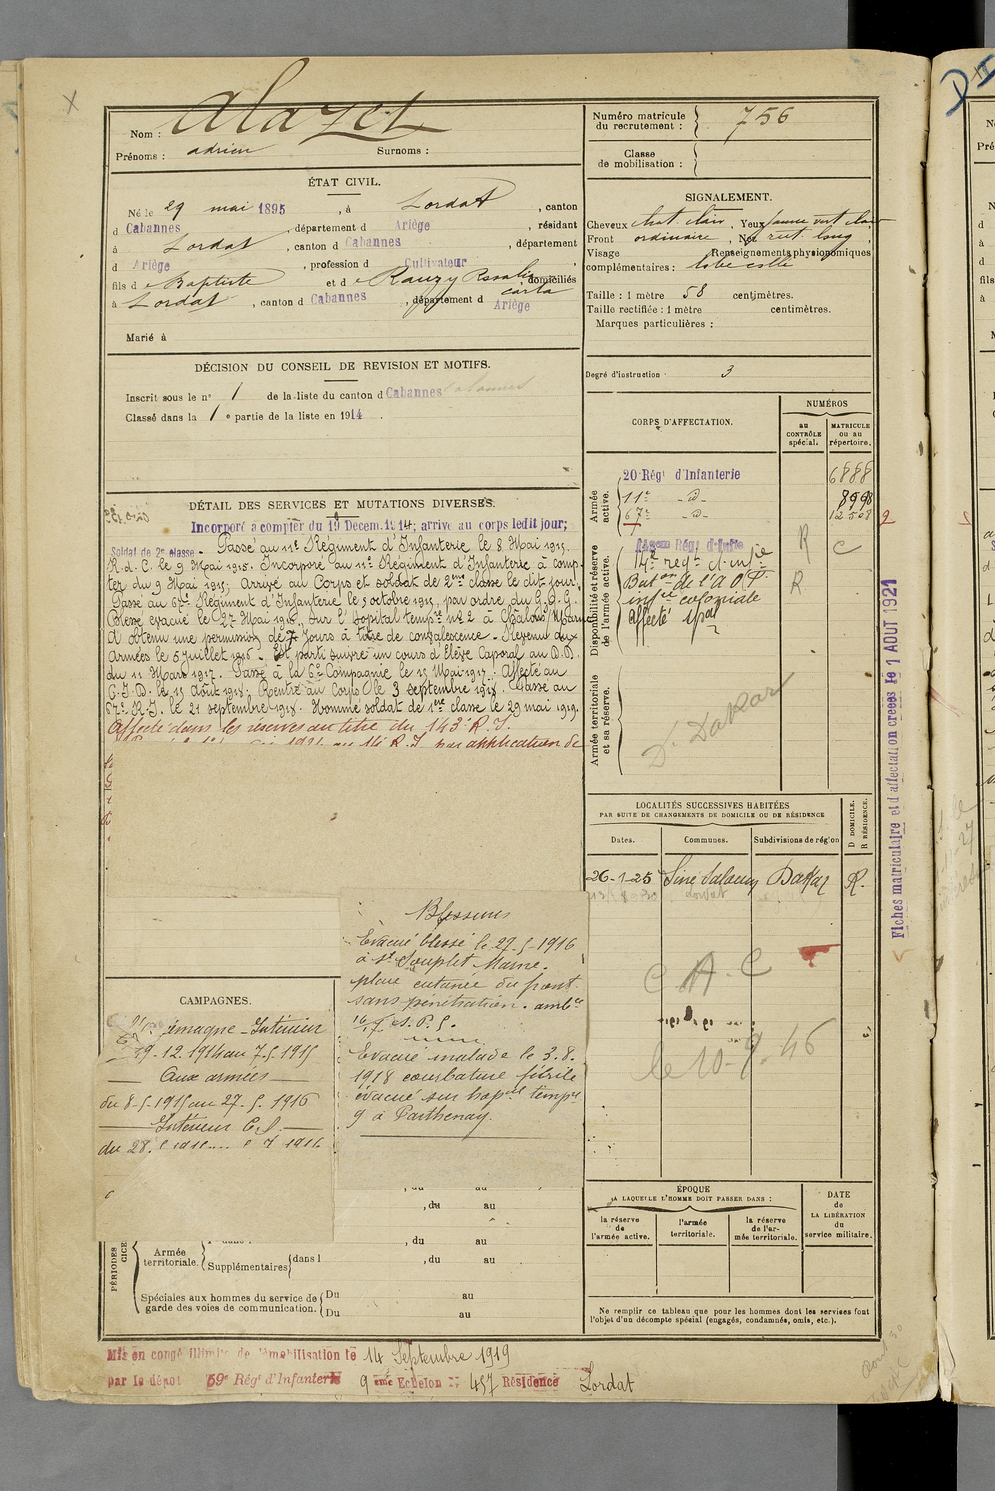 Nom : Alazet
Prénoms : adrien Surnoms :
Numéro matricule du recrutement : 756
Classe de mobilisation :
ÉTAT CIVIL.
Né le 29 mai 1895, à Lordat, canton
d Cabannes, département d Ariège, résidant
à Lordat, canton d Cabannes, département
d Ariège, profession d Cultivateur
fils d e Baptiste et d e Rauzy Rosalie, domiciliés
à Lordat, canton d Cabannes, département d Ariège
Marié à
SIGNALEMENT.
Cheveux chat clair, Yeux jaune vert clair
Front ordinaire, Nez rect. long,
Visage Renseignements physionomiques
complémentaires : lobe collé
Taille : 1 mètre 58 centimètres.
Taille rectifiée : 1 mètre centimètres.
Marques particulières :
Degré d'instruction 3
DÉCISION DU CONSEIL DE REVISION ET MOTIFS.
Inscrit sous le n° 1 de la liste du canton d Cabannes
Classé dans la 1 e partie de la liste en 1914.
DÉTAIL DES SERVICES ET MUTATIONS DIVERSES.
Incorporé à compter du 19 Décem. 1914; arrivé au corps ledit jour;
Soldat de 2e classe - Passé au 11e Régiment d'Infanterie le 8 Mai 1915.
R. d. C. le 9 Mai 1915. Incorporé au 11e Régiment d'Infanterie à comp-
ter du 9 Mai 1915; Arrivé au Corps et soldat de 2me classe le dit jour.
Passé au 67e Régiment d'Infanterie le 5 octobre 1915, par ordre du G.Q.G.
Blessé évacué le 27 Mai 1916, sur l'hopital tempre no 2 à Chalons s/Marne
A obtenu une permission de 7 jours à titre de convalescence - Revenu aux
Armées le 5 Juillet 1916 - Est parti suivre un cours d'Élève Caporal au D.D.
du 11 Mars 1917. Passé à la 6e Compagnie le 15 Mai 1917. Affecté au
C.I.D. le 15 Août 1918; Rentré au Corps le 3 septembre 1918. Passé au
R.I. le 21 septembre 1918. Homme soldat de 1ère classe le 29 mai 1919.
Affecté dans les réserves au titre du 143e R.I.
au 14e R.I. par application de
CORPS D'AFFECTATION.
NUMÉROS
au CONTRÔLE spécial.
MATRICULE ou au répertoire.
Armée active.
20 Régt d'Infanterie 6888
11e -d- 8998
67e -d- 12508
Disponibilité et réserve de l'armée active.
14e régt d'infie R C
Baton de l'A O F R
infie coloniale
Affecté
Armée territoriale et sa réserve.
Dt Dakar
LOCALITÉS SUCCESSIVES HABITÉES
PAR SUITE DE CHANGEMENTS DE DOMICILE OU DE RÉSIDENCE
Dates. Communes. Subdivisions de région D DOMICILE. R RÉSIDENCE.
26-1-25 Sine Saloum Dakar R.
Lordat
C A C
le 10-9-46
Fiches matriculaire et d'affectation creees le 1 AOUT 1921
CAMPAGNES.
Intérieur
19-12-1914 au 7-5-1915
Aux armées
du 8-5-1915 au 27-5-1916
Intérieur C.S.
du 28
Blessures
Evacué blessé le 27-5-1916
à St Souplet Marne.
plaie cutanée du front
sans pénétration. ambce
Evacué malade le 3.8.
1918 courbature fébrile
évacué sur hopal tempre
9 à Parthenay.
, du au
, du au
, du au
PÉRIODES
Armée territoriale.
Supplémentaires dans l , du au
Spéciales aux hommes du service de garde des voies de communication.
Du au
Du au
ÉPOQUE
A LAQUELLE L'HOMME DOIT PASSER DANS :
la réserve de l'armée active. l'armée territoriale. la réserve de l'armée territoriale.
DATE DE LA LIBÉRATION du service militaire.
Ne remplir ce tableau que pour les hommes dont les services font
l'objet d'un décompte spécial (engagés, condamnés, omis, etc.).
Mis en congé illimité de démobilisation le 14 Septembre 1919
par le dépot 59e Régt d'Infanterie 9 eme Echelon n° 457 Résidence Lordat